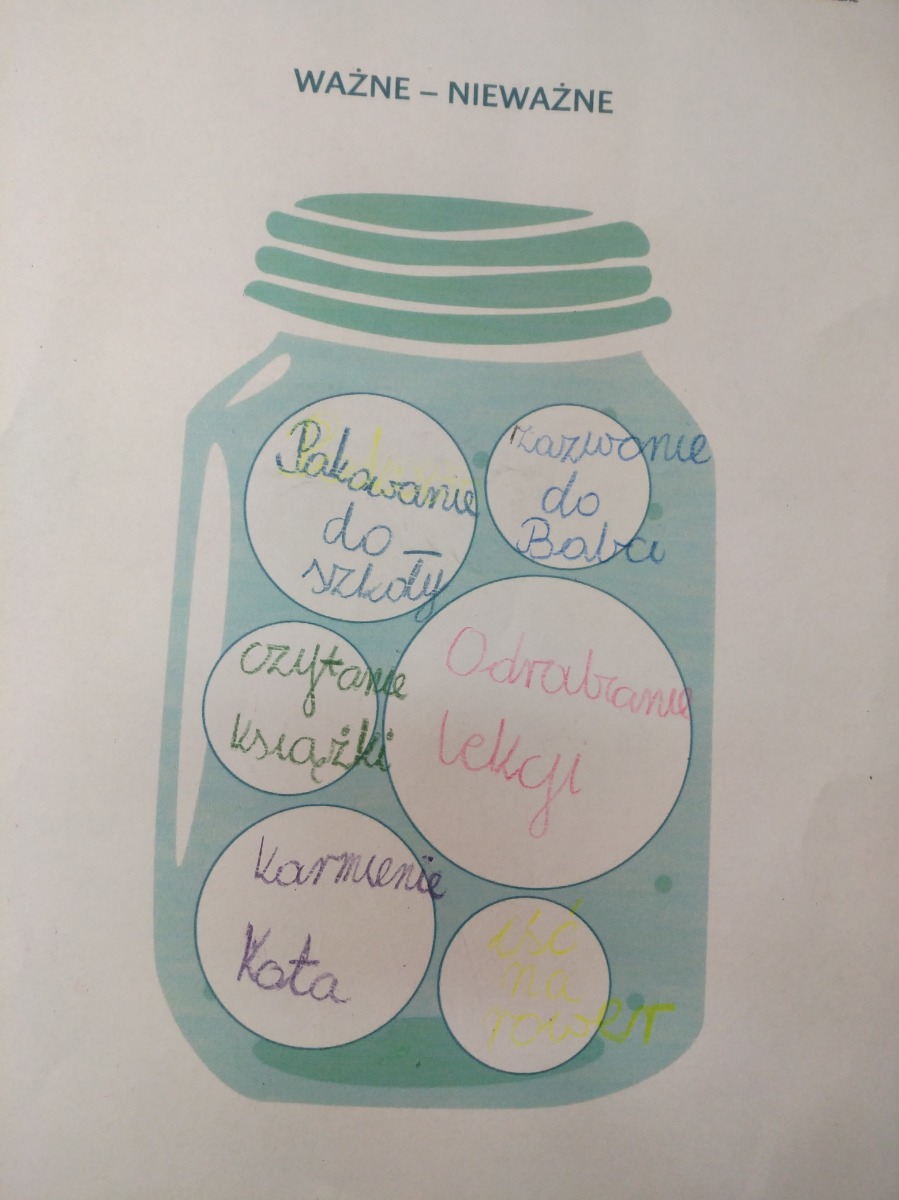 WAŻNE – NIEWAŻNE
Pakowanie
do
szkoły
zazwonie
do
Baba
czytanie
książki
Odrabianie
lekcji
karmienie
Kota
iść
na
rower